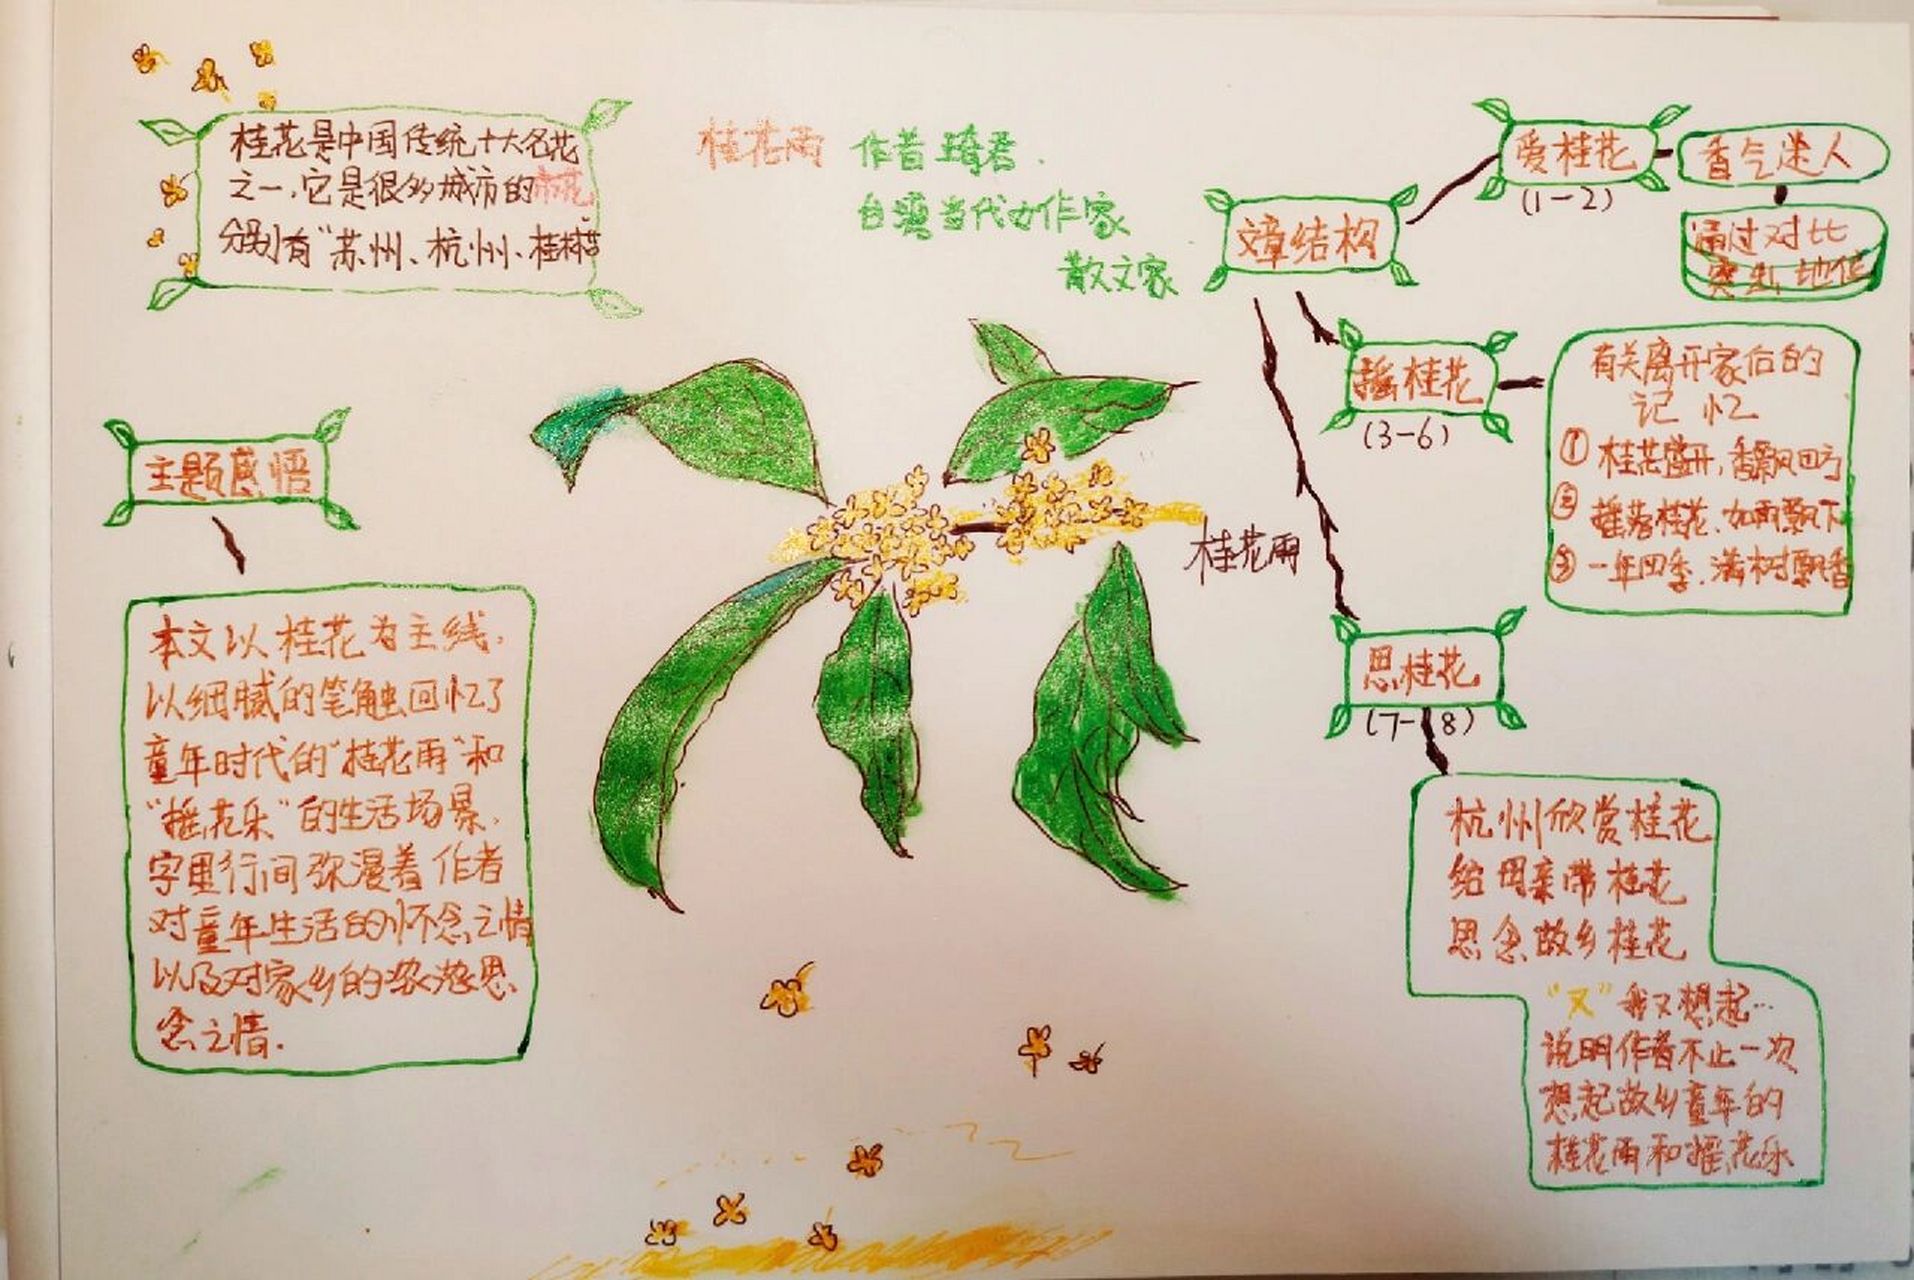 桂花是中国传统十大名花
之一,它是很多城市的市花
分别有“苏州、杭州、桂林等
桂花雨
作者琦君.
台湾当代女作家
散文家
文章结构
爱桂花
(1-2)
香气迷人
通过对比
突出地位
摇桂花
(3-6)
有关离开家后的
记忆
① 桂花盛开,香飘四方
② 摇落桂花、如雨飘下
③ 一年四季,满树飘香
思桂花
(7-8)
杭州欣赏桂花
给母亲带桂花
思念故乡桂花
“又”我又想起…
说明作者不止一次
想起故乡童年的
桂花雨和摇花乐
桂花雨
主题感悟
本文以桂花为主线,
以细腻的笔触回忆了
童年时代的“桂花雨”和
“摇花乐”的生活场景,
字里行间弥漫着作者
对童年生活的怀念之情
以及对家乡的浓浓思
念之情.